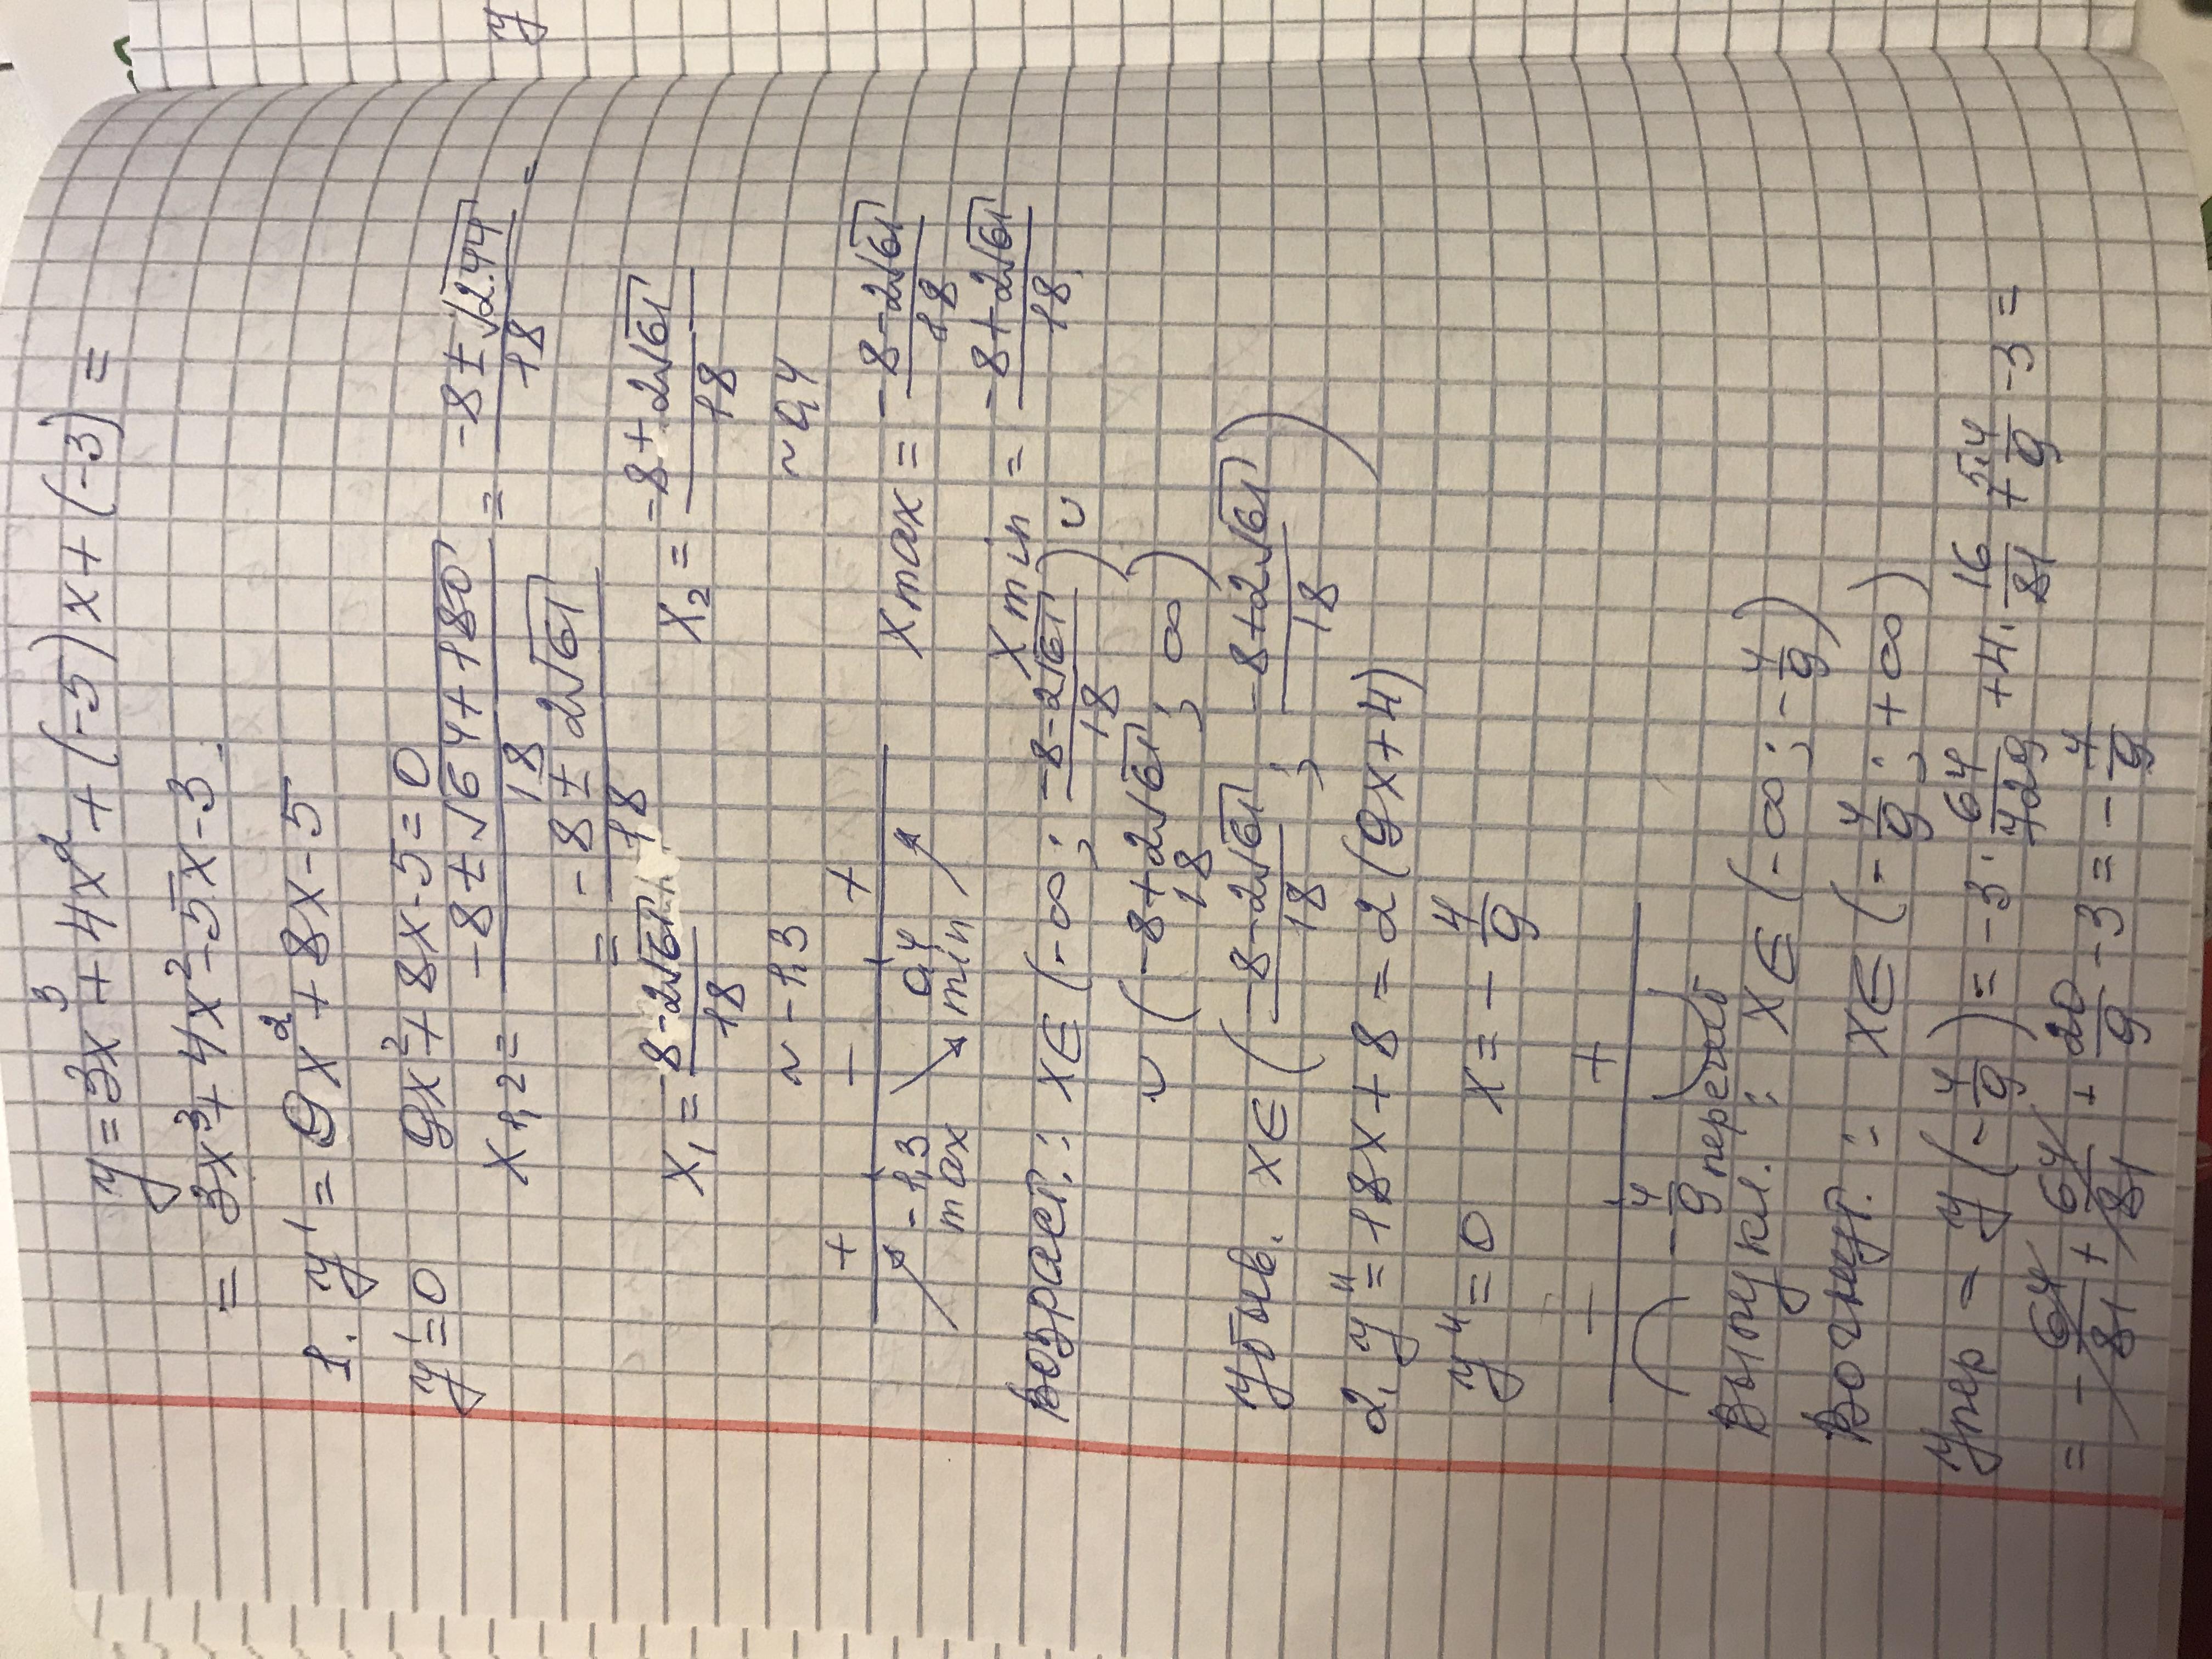 y = 3x³ + 4x² + (-5)x + (-3) =
= 3x³ + 4x² - 5x - 3
1. y' = 9x² + 8x - 5
y' = 0 9x² + 8x - 5 = 0
x₁,₂ = (-8 ± √(64 + 180))/18 = (-8 ± √244)/18 =
= (-8 ± 2√61)/18
x₁ = (-8 - 2√61)/18 x₂ = (-8 + 2√61)/18
~ -1,3 ~ 0,4
+ - +
-1,3 0,4
max min
x max = (-8 - 2√61)/18
x min = (-8 + 2√61)/18
Возраст.: x ∈ (-∞; (-8 - 2√61)/18) ∪
∪ ((-8 + 2√61)/18; ∞)
Убыв. x ∈ ((-8 - 2√61)/18; (-8 + 2√61)/18)
2. y'' = 18x + 8 = 2(9x + 4)
y'' = 0 x = -4/9
- +
-4/9 перегиб
Выпукл.: x ∈ (-∞; -4/9)
Вогнут.: x ∈ (-4/9; +∞)
Yпер = y(-4/9) = -3 · 64/729 + 4 · 16/81 + 5·4/9 - 3 =
= -64/81 + 64/81 + 20/9 - 3 = -4/9
y